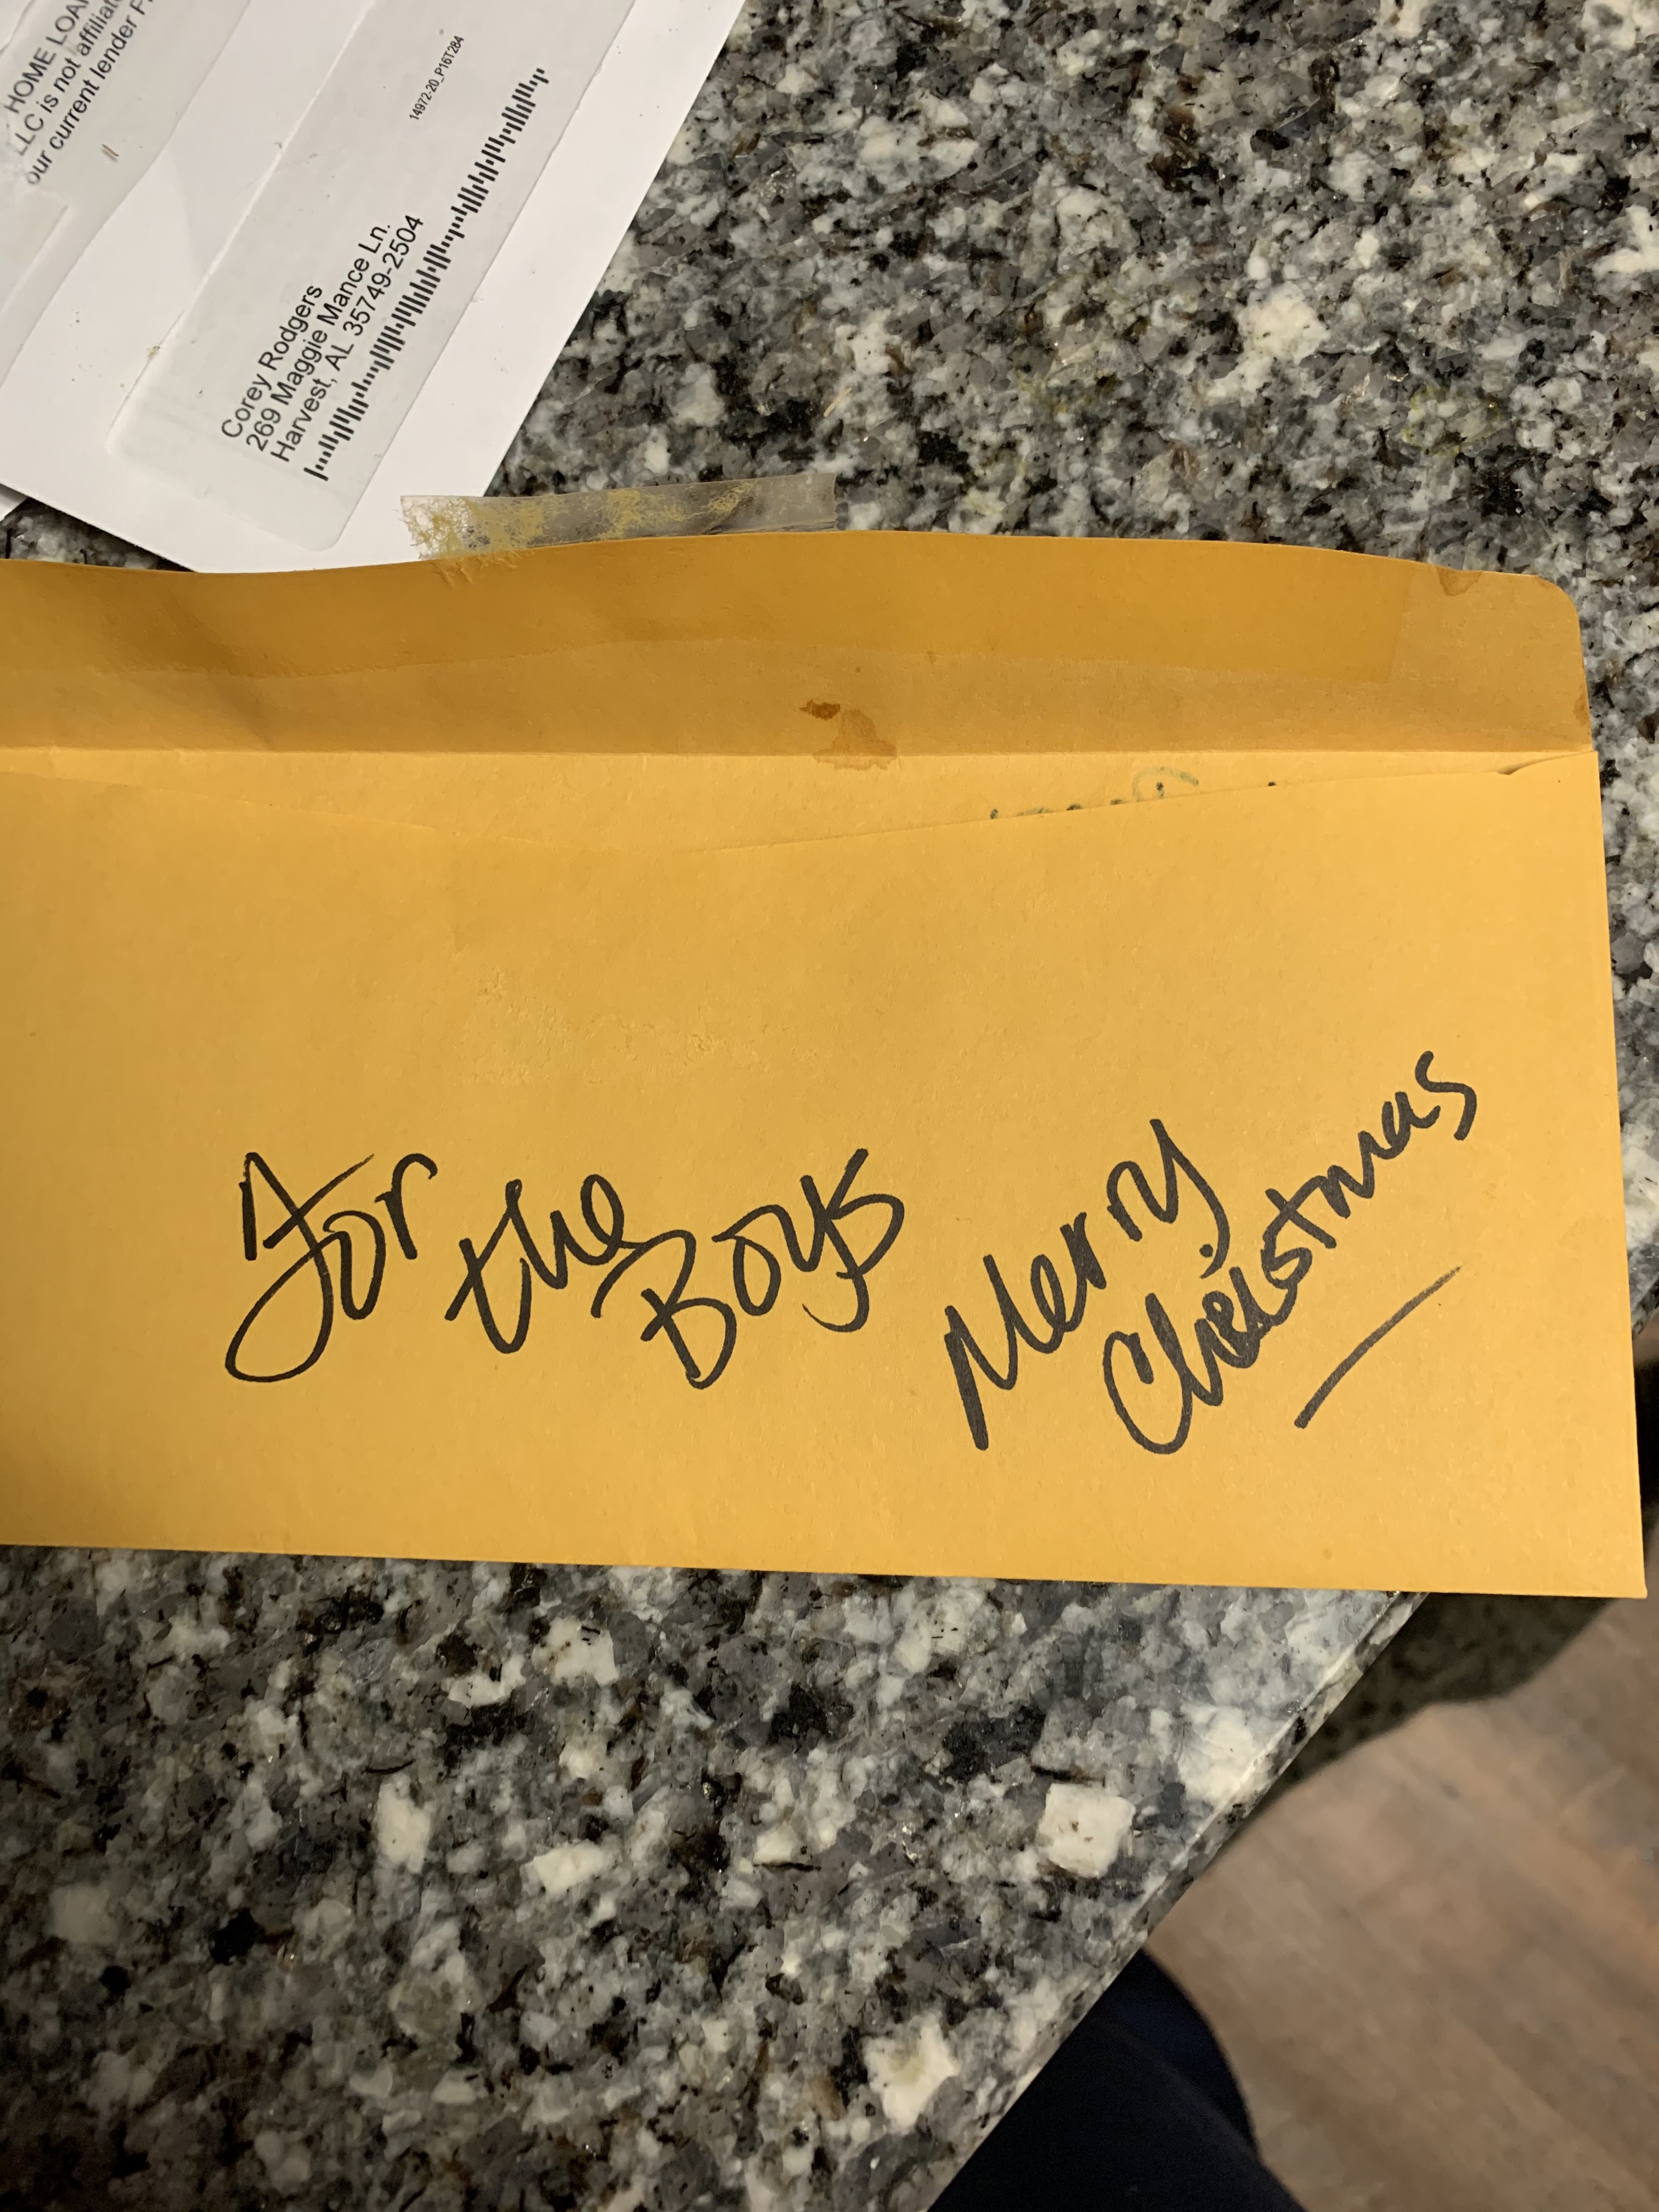 HOME LOA
LLC is not affiliat
our current lender F
14972-20_P16T284
Corey Rodgers
269 Maggie Mance Ln.
Harvest, AL 35749-2504
For the Boys
Merry
Christmas